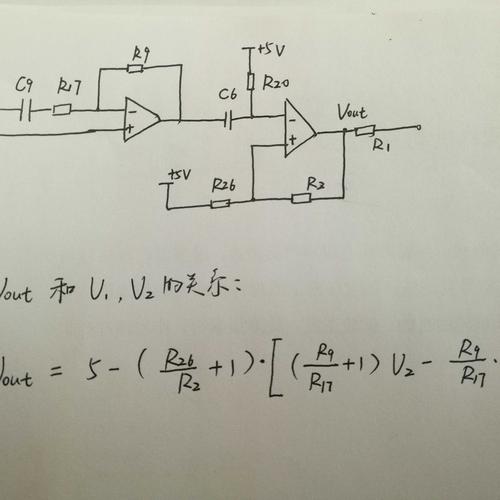 R9
+5V
C9 R17 R20
C6
Vout
- -
+ +
R1
+5V R26 R2
Vout 和 U1,U2的关系:
Vout = 5-(R26/R2+1)·[(R9/R17+1)U2-R9/R17·